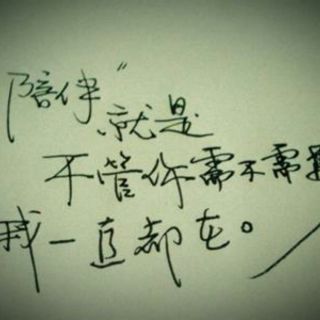 陪伴”
就是
不管你需不需要
我一直都在。